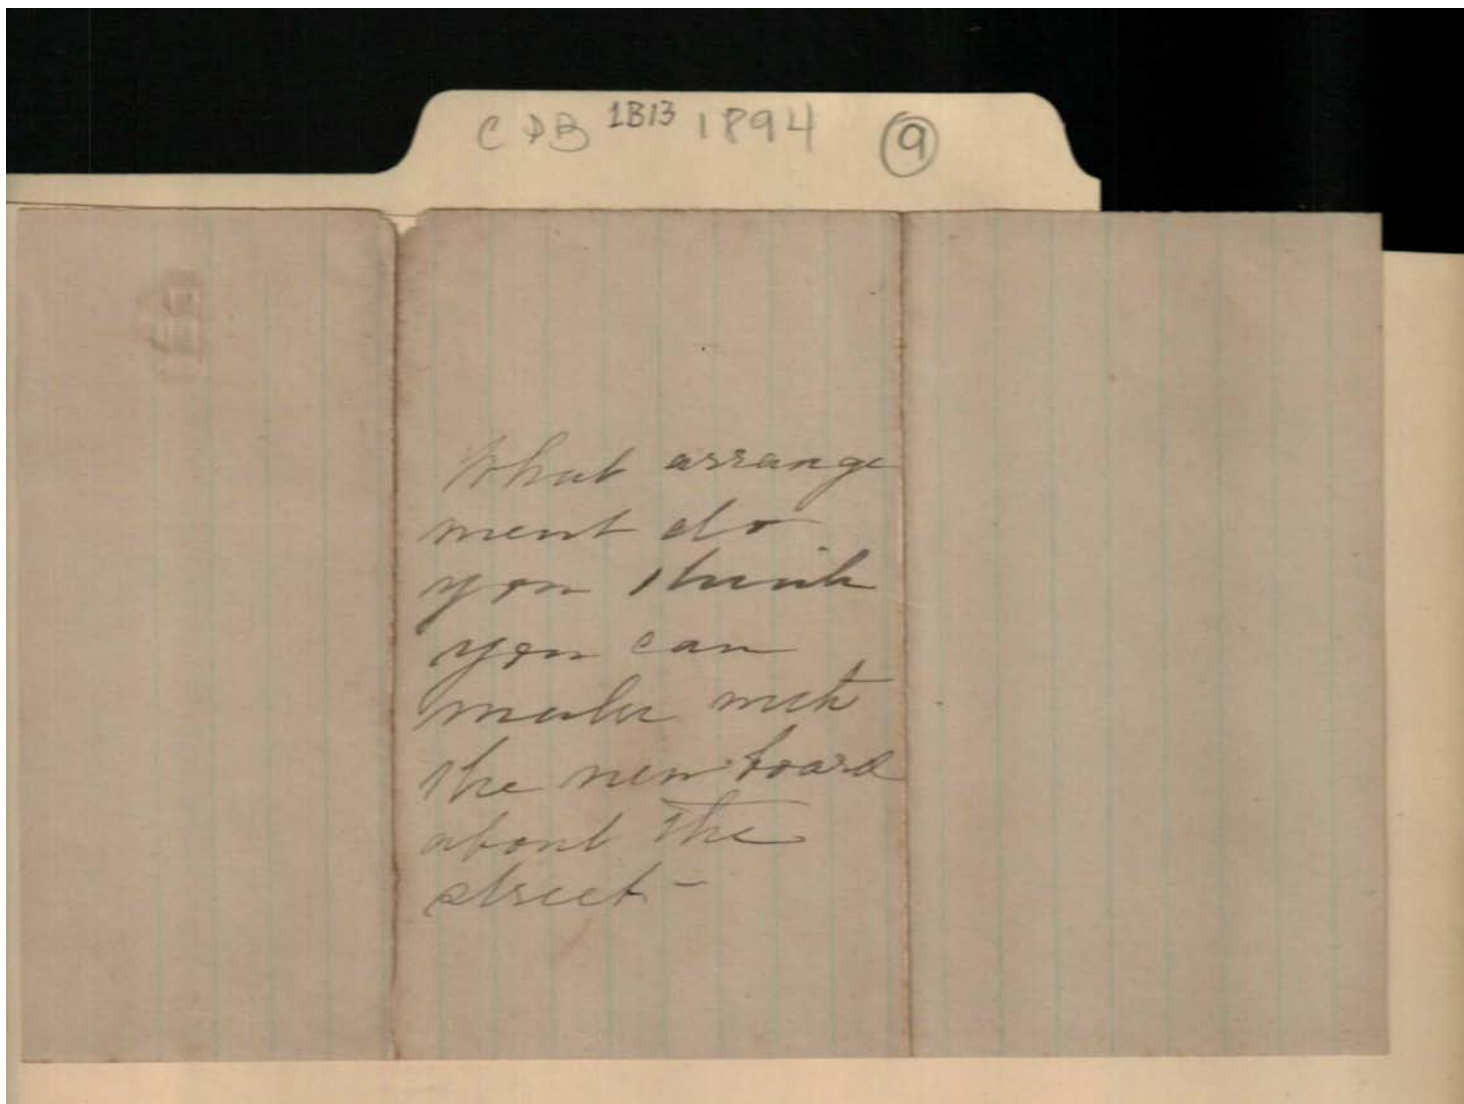 CDB 1B13 1894 9
What arrange
ment do
you think
you can
make with
the new board
about the
street -